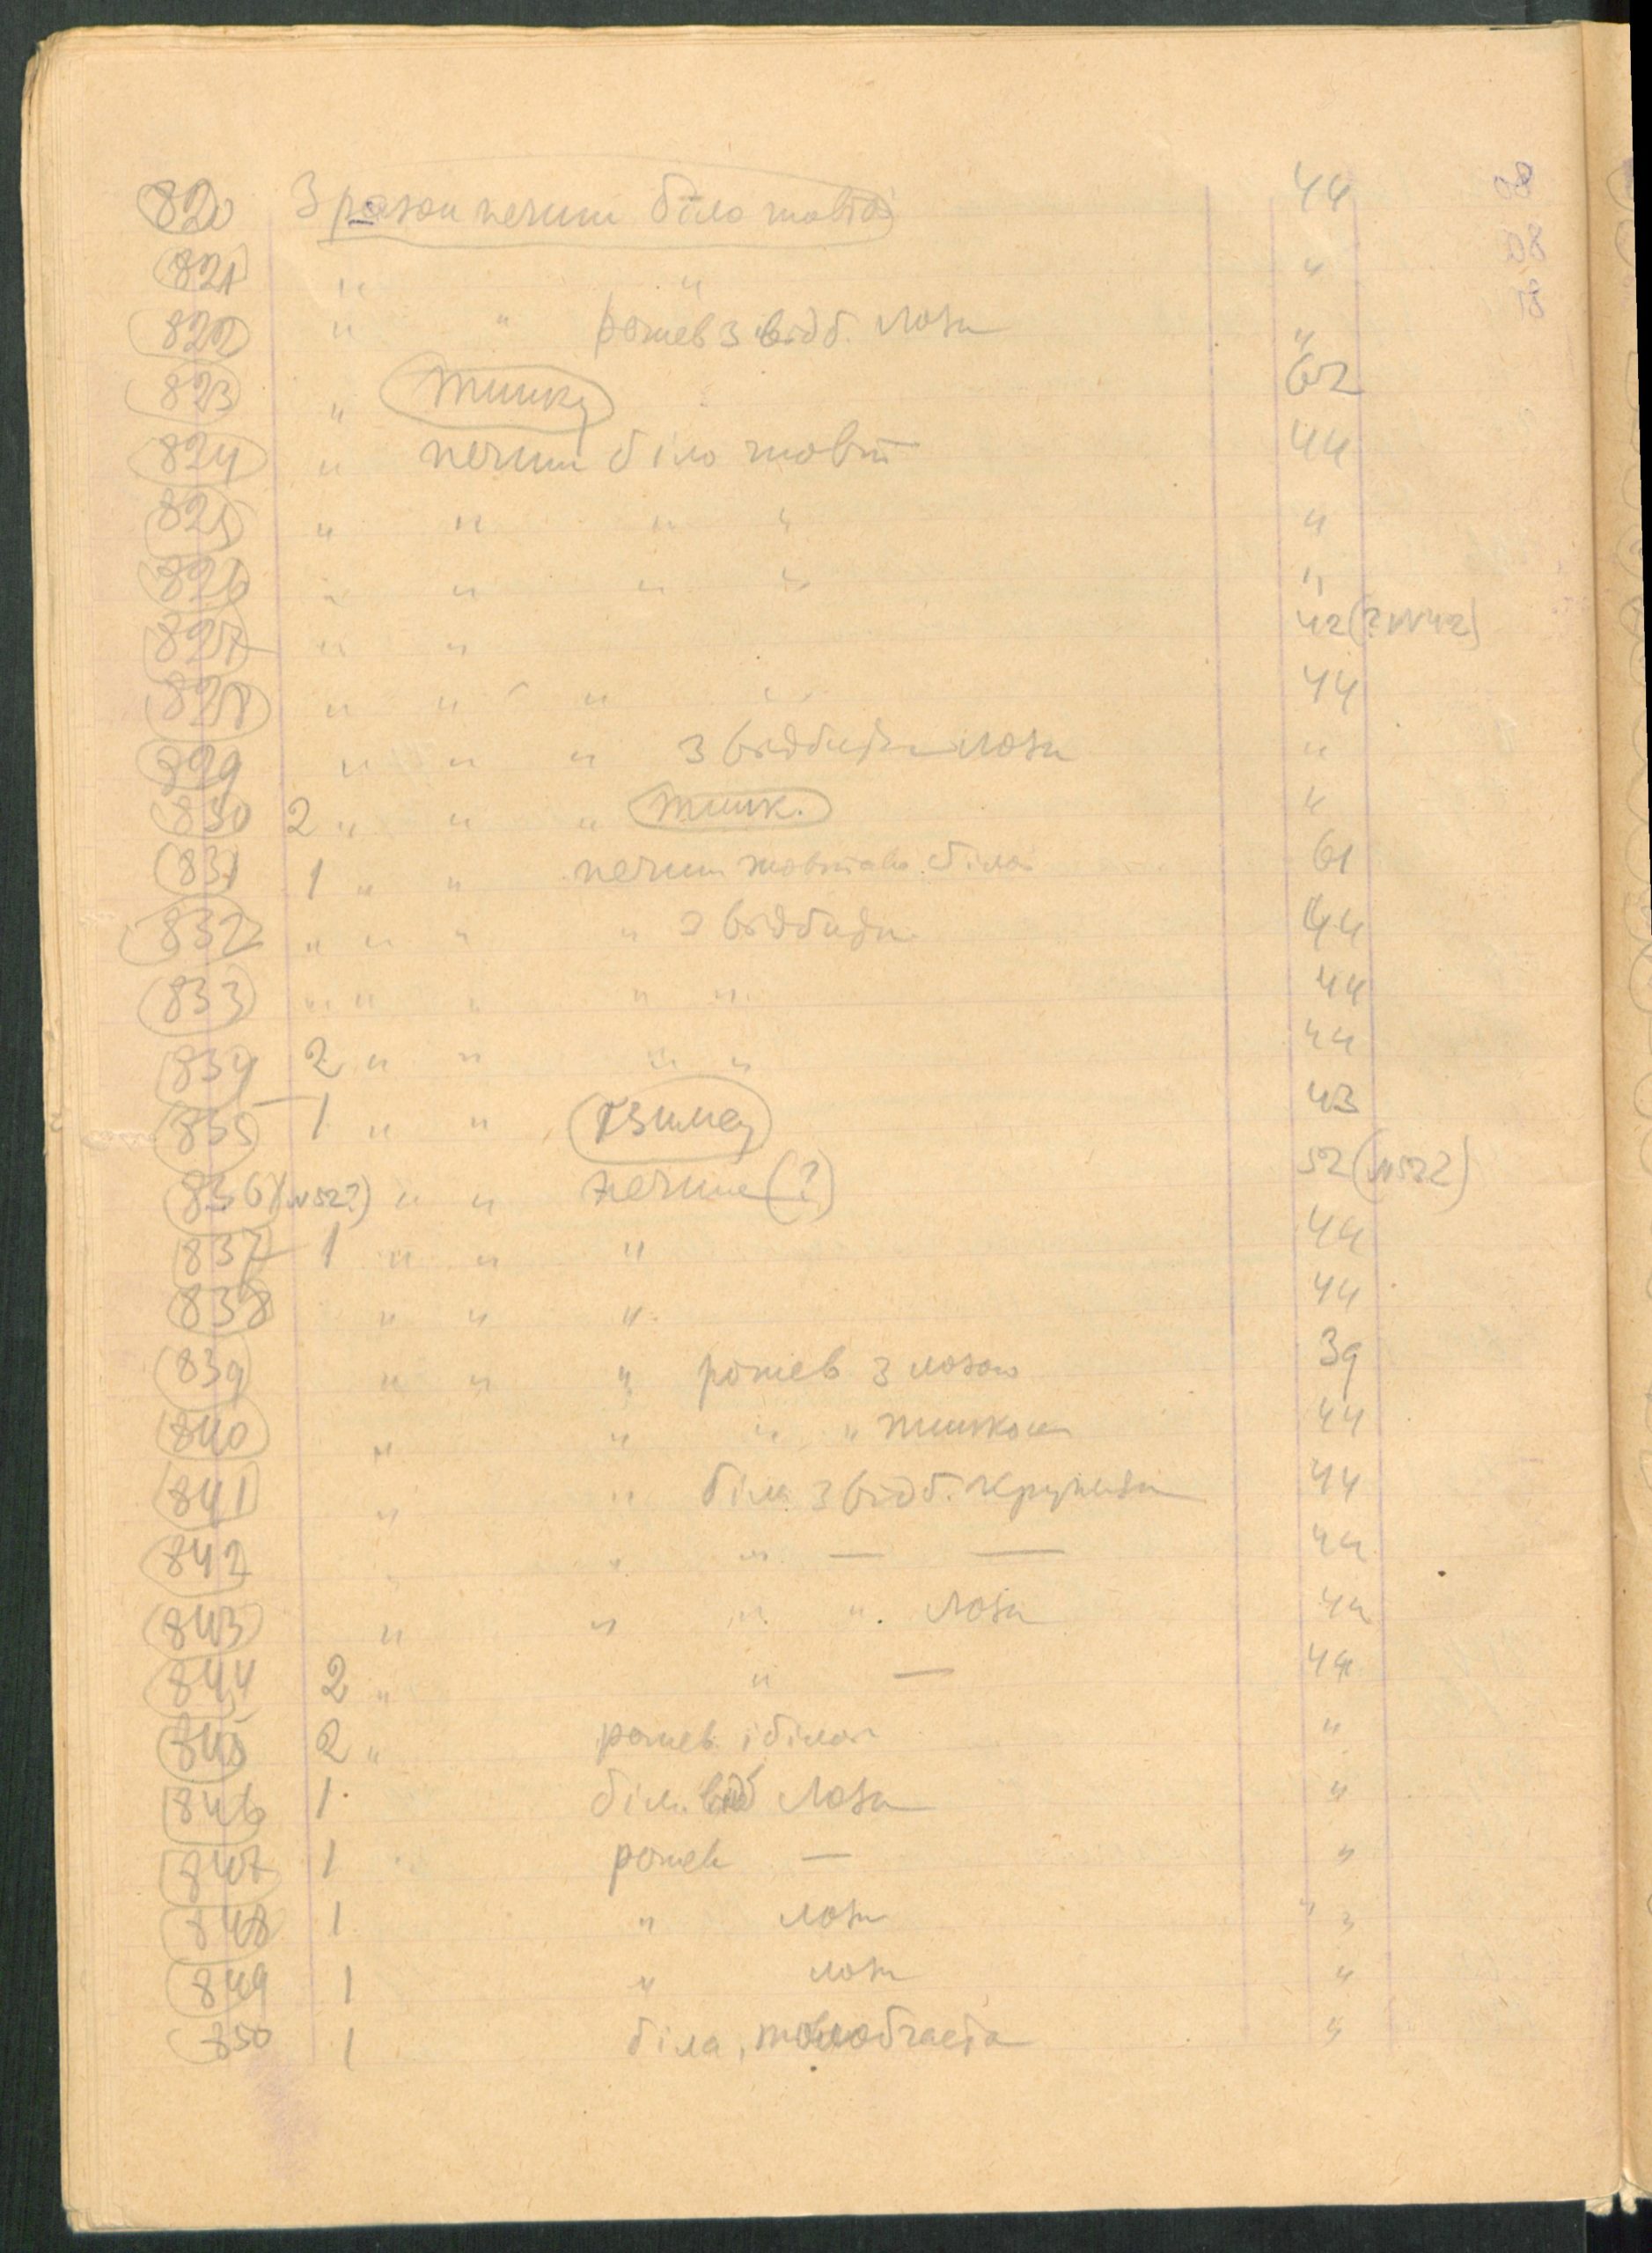 820 Зразок печини біло жовта 44
821 " " "
822 " " рожев з відб. лози "
823 " тинку 62
824 " печини біло жовт 44
825 " " " " "
826 " " " " "
827 " " 42 (? N42)
828 " " " " 44
829 " " " з відбитк лози "
830 2 " " " тинк. "
831 1 " " печин жовтава біла 61
832 " " " " з відбитк 44
833 " " " " " 44
834 2 " " " " 44
835 1 " " 43
836 (N52?) " " печини (?) 52 (N52?)
837 1 " " " 44
838 " " " 44
839 " " " рожев з лозою 39
840 " " " " тинком 44
841 " " біла з відб. 44
842 " " " — — 44
843 " " " " лози 44
844 2 " " — 44
845 2 " рожев. і біла "
846 1 біл. відб лози "
847 1 рожев — "
848 1 " лози " "
849 1 " лози "
850 1 біла, "